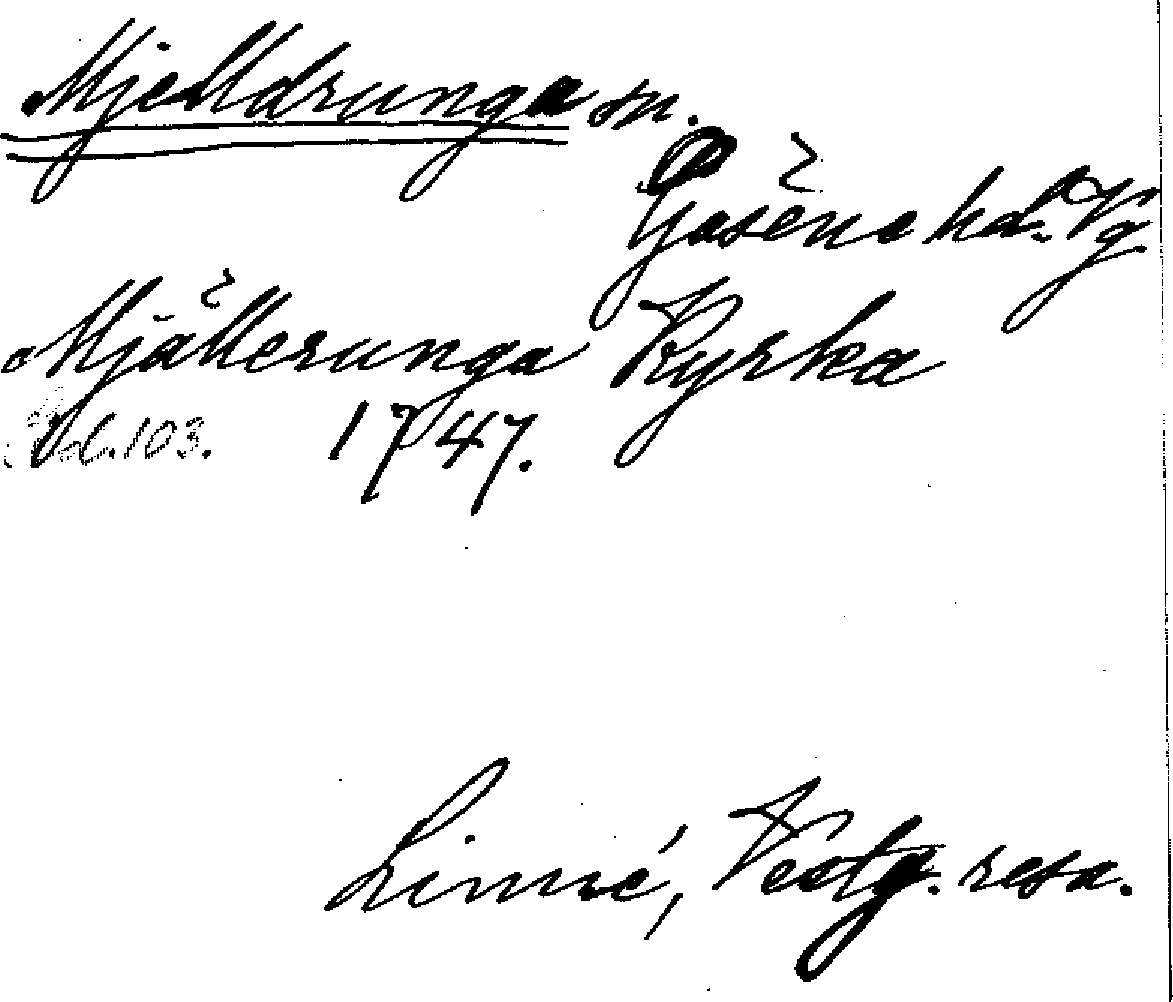 Mjelldrunga sn.
Gäsene hd. Vg.
Mjällerunga Kyrka
sid. 103. 1747.
Linné, Vestg. resa.